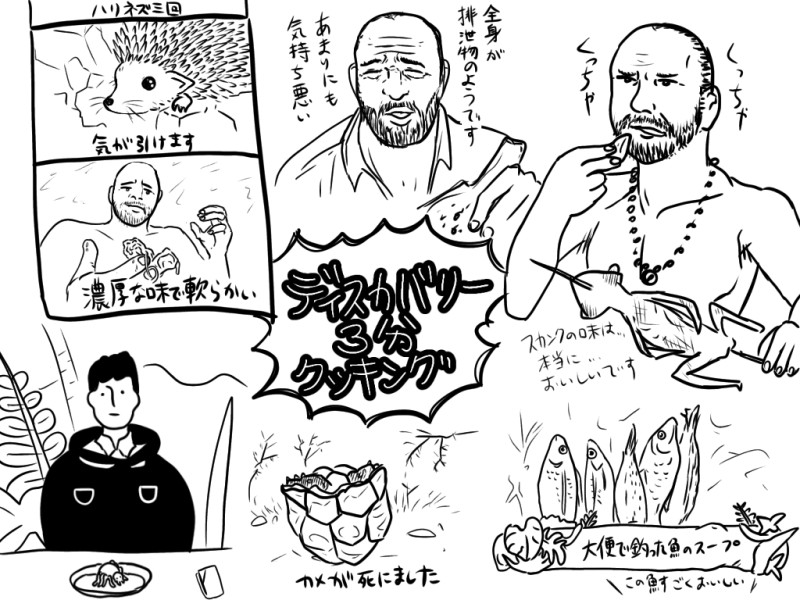 ハリネズミ回
気が引けます
濃厚な味で軟らかい
全身が
排泄物のようです
あまりにも
気持ち悪い
くっちゃ
くっちゃ
ディスカバリー
3分
クッキング
スカンクの味は…
本当に…
おいしいです
カメが死にました
大便で釣った魚のスープ
\この魚すごくおいしい/